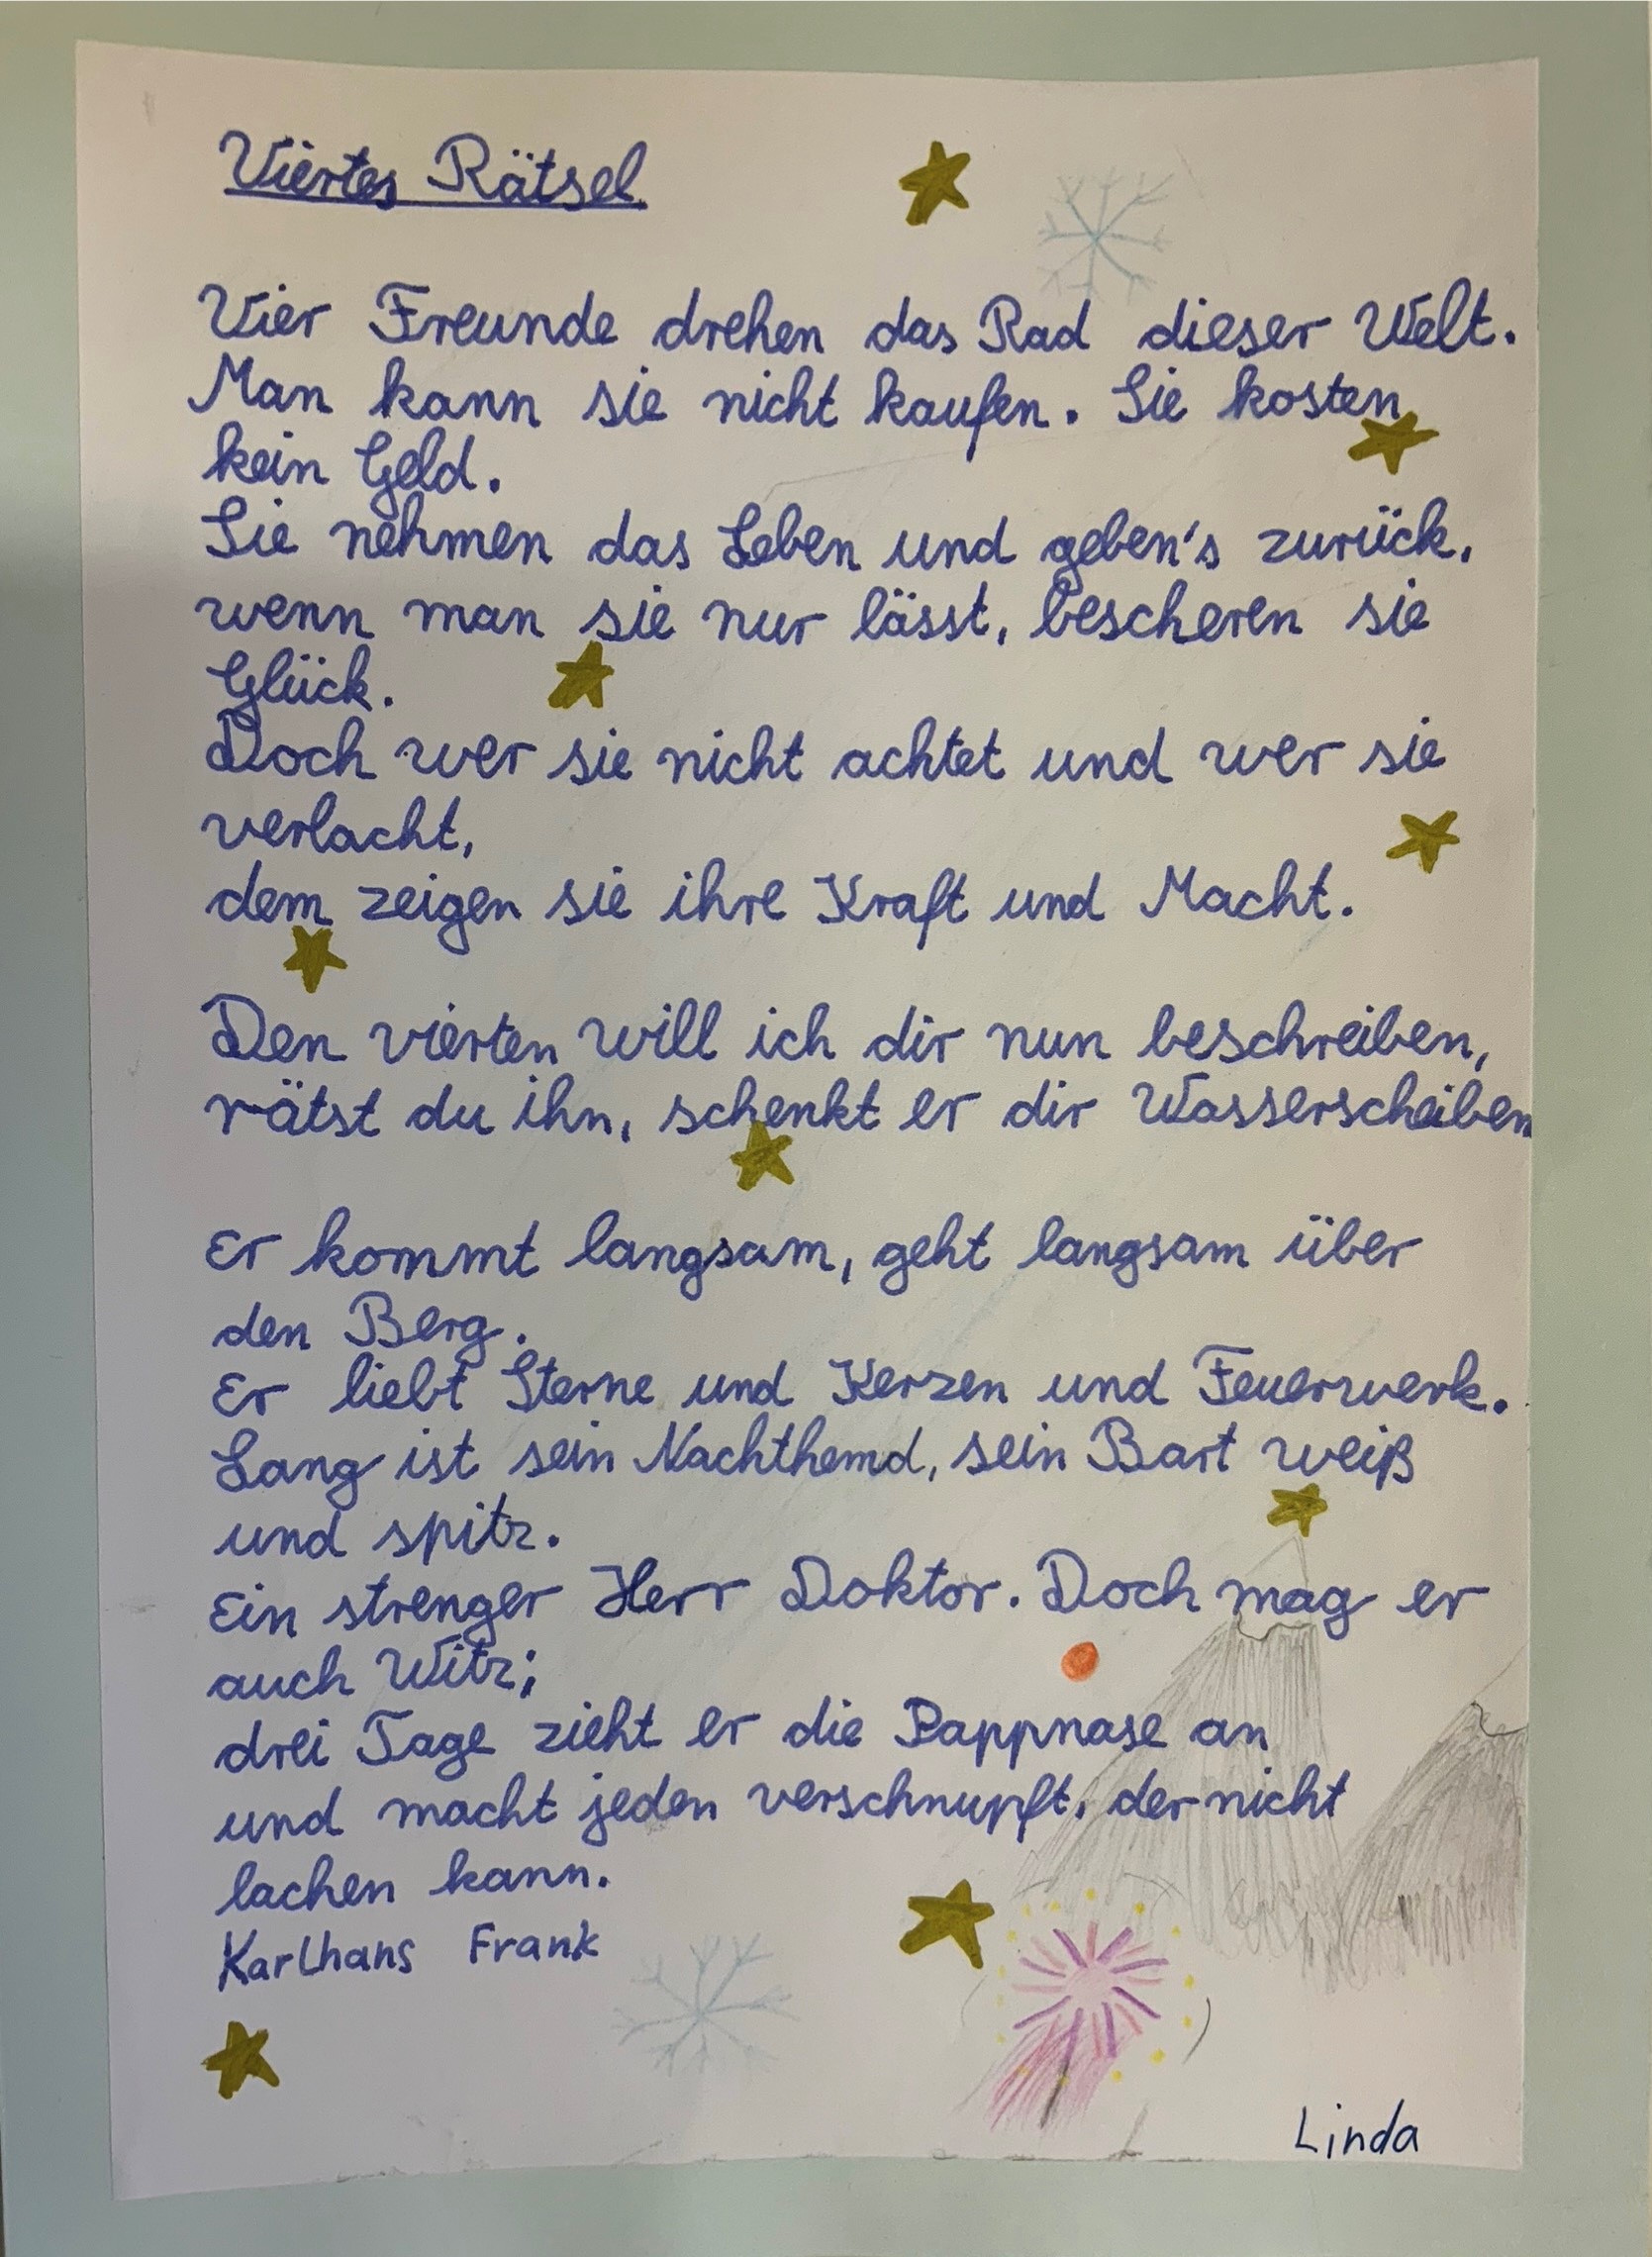 Viertes Rätsel
Vier Freunde drehen das Rad dieser Welt.
Man kann sie nicht kaufen. Sie kosten
kein Geld.
Sie nehmen das Leben und geben's zurück,
wenn man sie nur lässt, bescheren sie
Glück.
Doch wer sie nicht achtet und wer sie
verlacht,
dem zeigen sie ihre Kraft und Macht.
Den vierten will ich dir nun beschreiben,
rätst du ihn, schenkt er dir Wasserscheiben
Er kommt langsam, geht langsam über
den Berg.
Er liebt Sterne und Kerzen und Feuerwerk.
Lang ist sein Nachthemd, sein Bart weiß
und spitz.
Ein strenger Herr Doktor. Doch mag er
auch Witz;
drei Tage zieht er die Pappnase an
und macht jeden verschnupft, der nicht
lachen kann.
Karlhans Frank
Linda